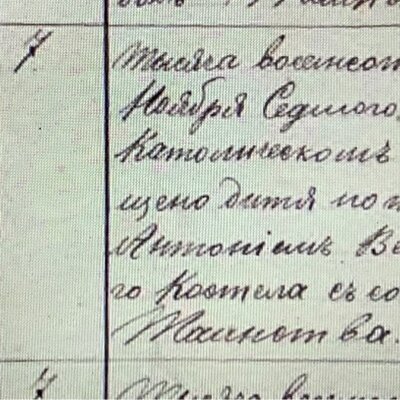 7 Тысяча восемсот
Ноября Седмого
Католическомъ
щено дитя по
Антоніемъ Ве
го Костела съ со
Таинства.
7 Тысяча